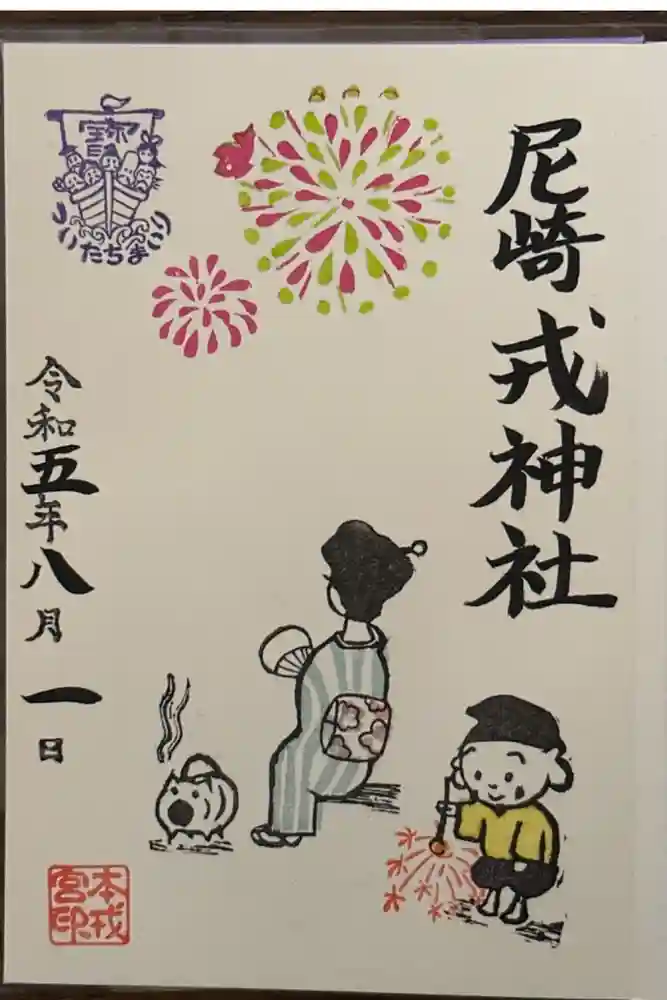 尼崎戎神社
寳
ついたちまいり
令和五年八月一日
本戎
宮印